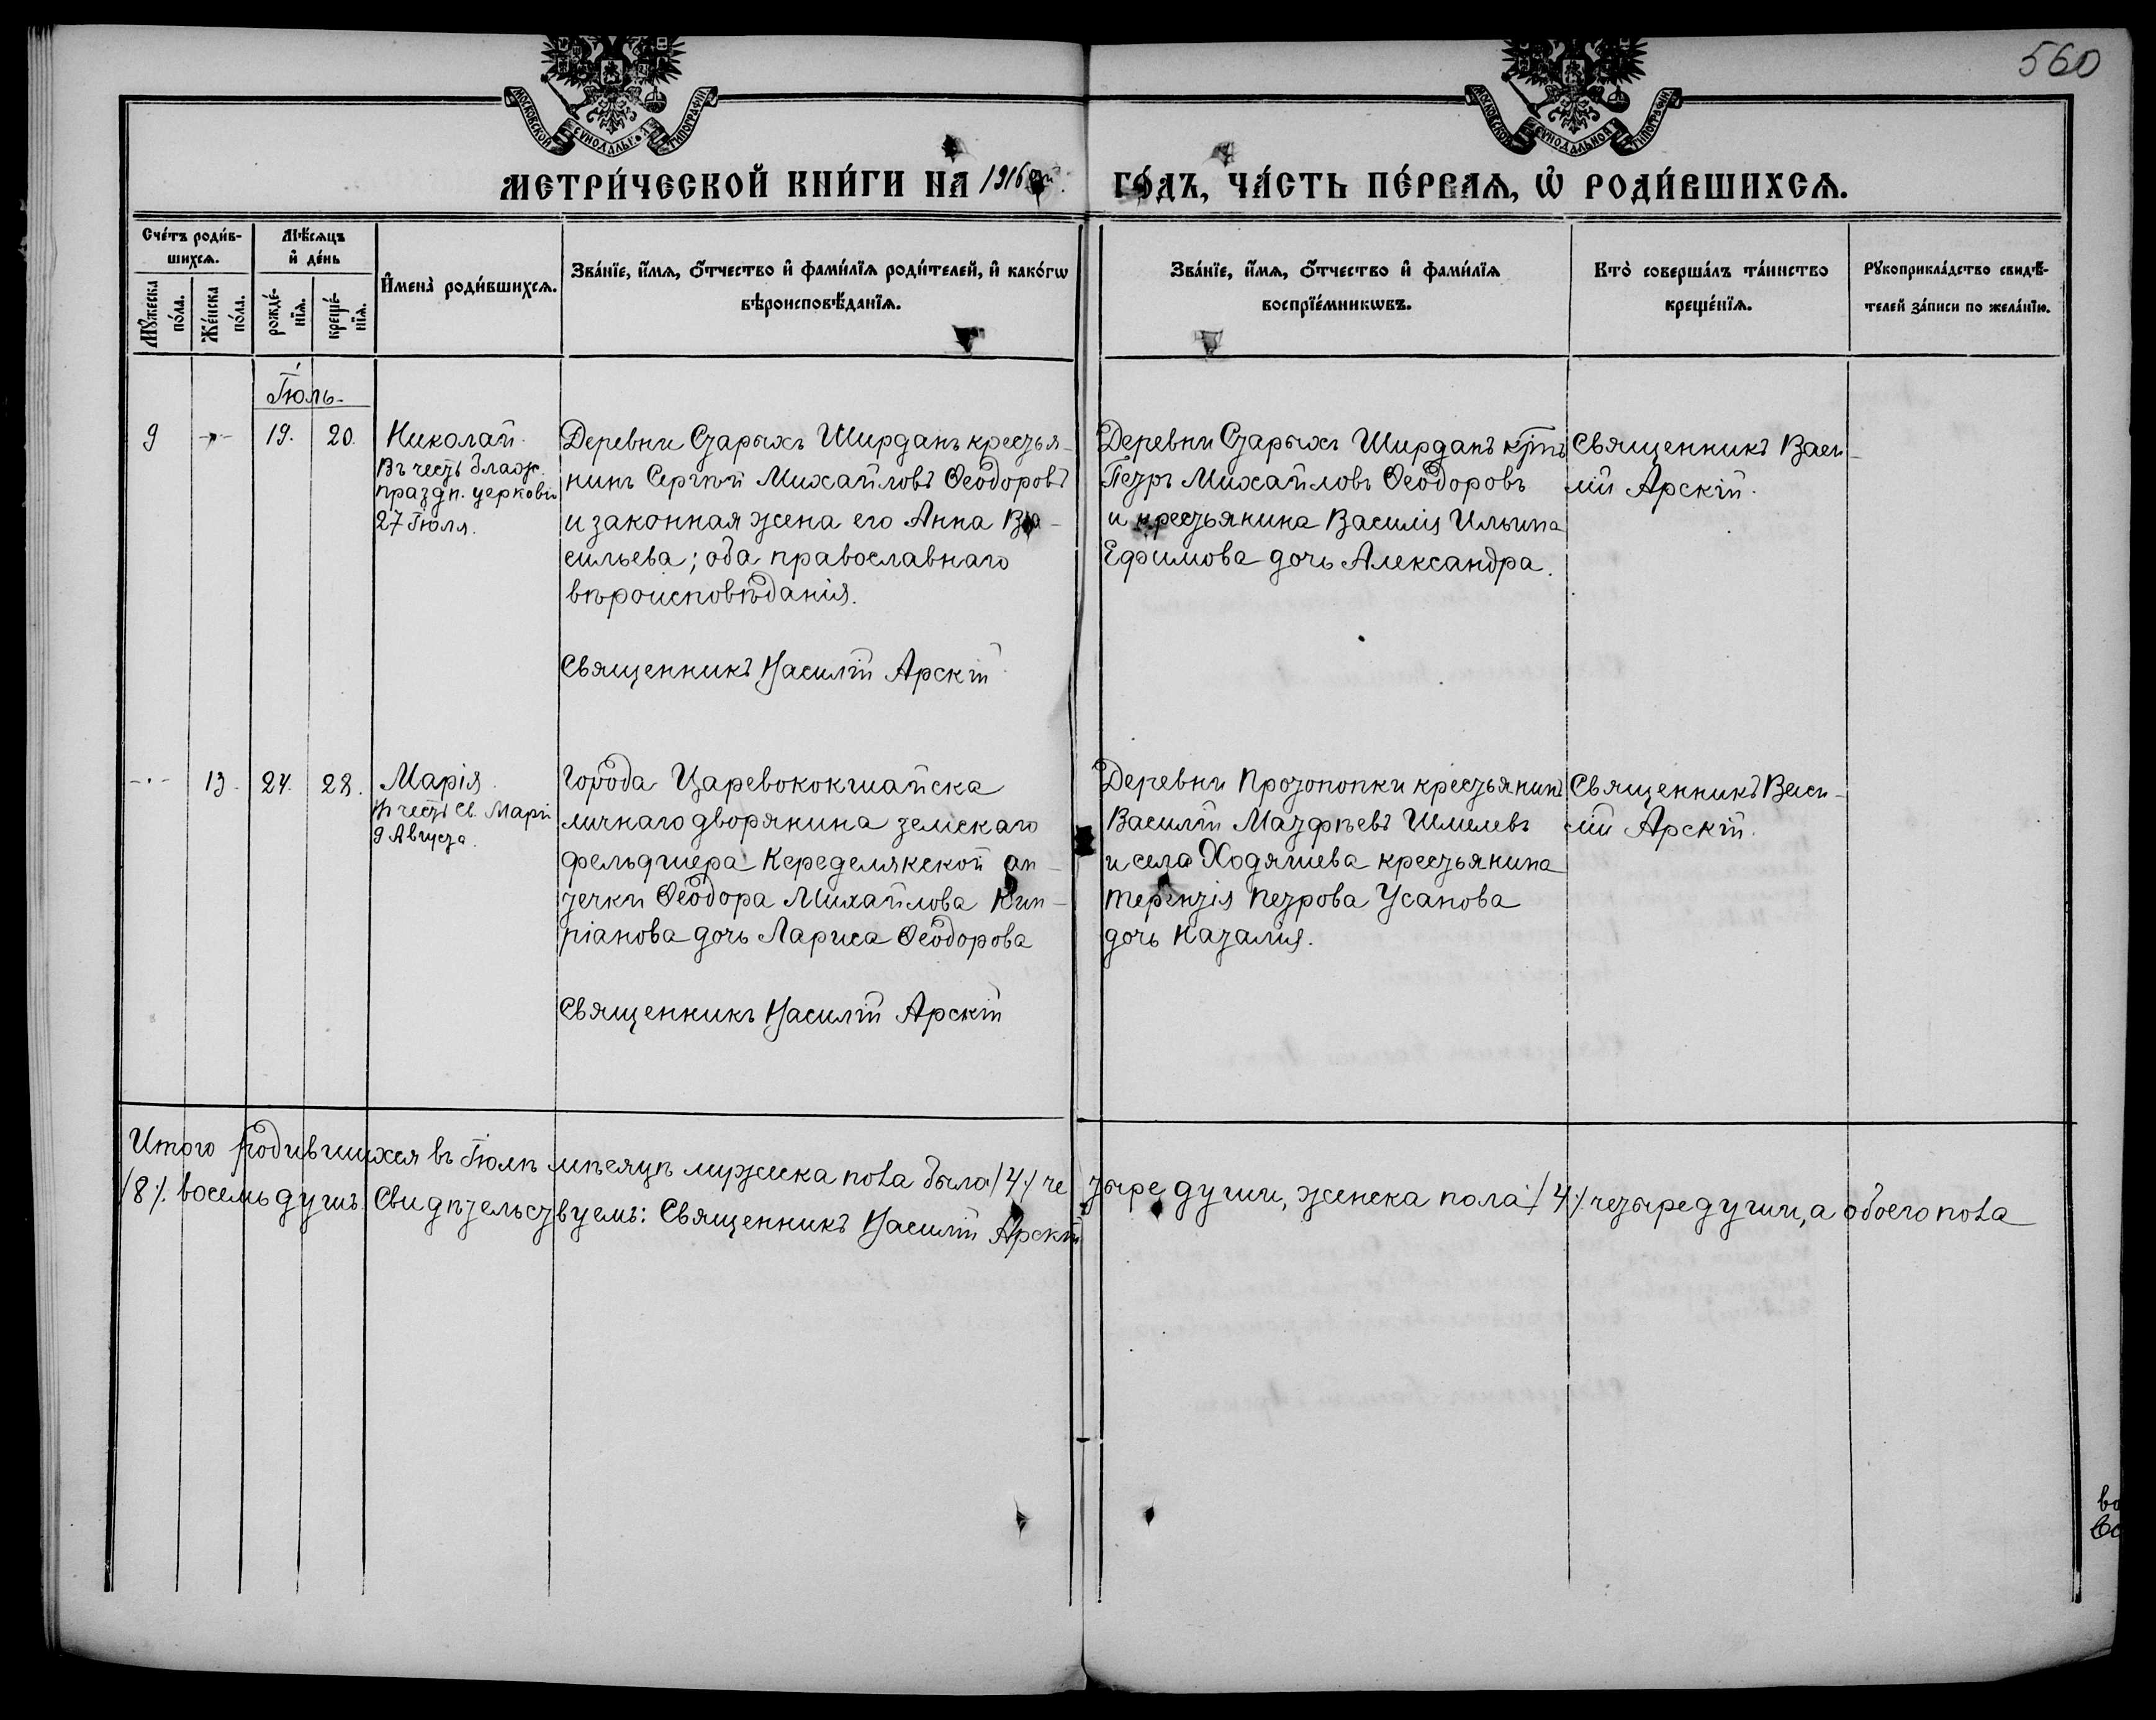 560
МОСКОВСКОЙ СѴНОДАЛЬНОЙ ТИПОГРАФІИ
МОСКОВСКОЙ СѴНОДАЛЬНОЙ ТИПОГРАФІИ
МЕТРИ́ЧЕСКОЙ КНИ́ГИ НА 1916
ГО́ДЪ, ЧА́СТЬ ПЕ́РВАѦ, Ѡ҆ РОДИ́ВШИХСѦ.
Сче́тъ роди́в-
шихсѧ.
Мꙋ́жеска
по́ла.
Же́нска
по́ла.
Мѣ́сѧцъ
и҆ де́нь
рожде́-
нїѧ.
креще́-
нїѧ.
И҆мена̀ роди́вшихсѧ.
Зва́нїе, и҆́мѧ, ѻ҆́тчество и҆ фами́лїѧ роди́телей, и҆ како́гѡ
вѣроисповѣ́данїѧ.
Зва́нїе, и҆́мѧ, ѻ҆́тчество и҆ фами́лїѧ
воспрїе́мникѡвъ.
Кто̀ соверша́лъ та́инство
креще́нїѧ.
Рꙋкоприкла́дство свидѣ́-
телей за́писи по жела́нїю.
Іюль.
9
19.
20.
Николай.
Въ честь блаж.
праздн. церковью
27 Іюля.
Деревни Старыхъ Ширданъ крестья-
нинъ Сергѣй Михайловъ Ѳеодоровъ
и законная жена его Анна Ва-
сильева; оба православнаго
вѣроисповѣданія.
Священникъ Василій Арскій
Деревни Старыхъ Ширданъ крнъ
Петръ Михайловъ Ѳеодоровъ
и крестьянина Василія Ильина
Ефимова дочь Александра.
Священникъ Васи-
лій Арскій.
13.
24.
28.
Марія.
Въ честь св. Маріи
9 Августа.
Города Царевококшайска
личнаго дворянина земскаго
фельдшера Кередемякской ап-
течки Ѳеодора Михайлова Кип-
ріанова дочь Лариса Ѳеодорова
Священникъ Василій Арскій
Деревни Протопопки крестьянинъ
Василій Матфѣевъ Шмелевъ
и села Ходяшева крестьянина
Терентія Петрова Усанова
дочь Наталія.
Священникъ Васи-
лій Арскій.
Итого родившихся въ Іюлѣ мѣсяцѣ мужеска пола было /4/ че
тыре души, женска пола /4/ четыре души, а обоего пола
/8/. восемь душъ. Свидѣтельствуемъ: Священникъ Василій Арскій